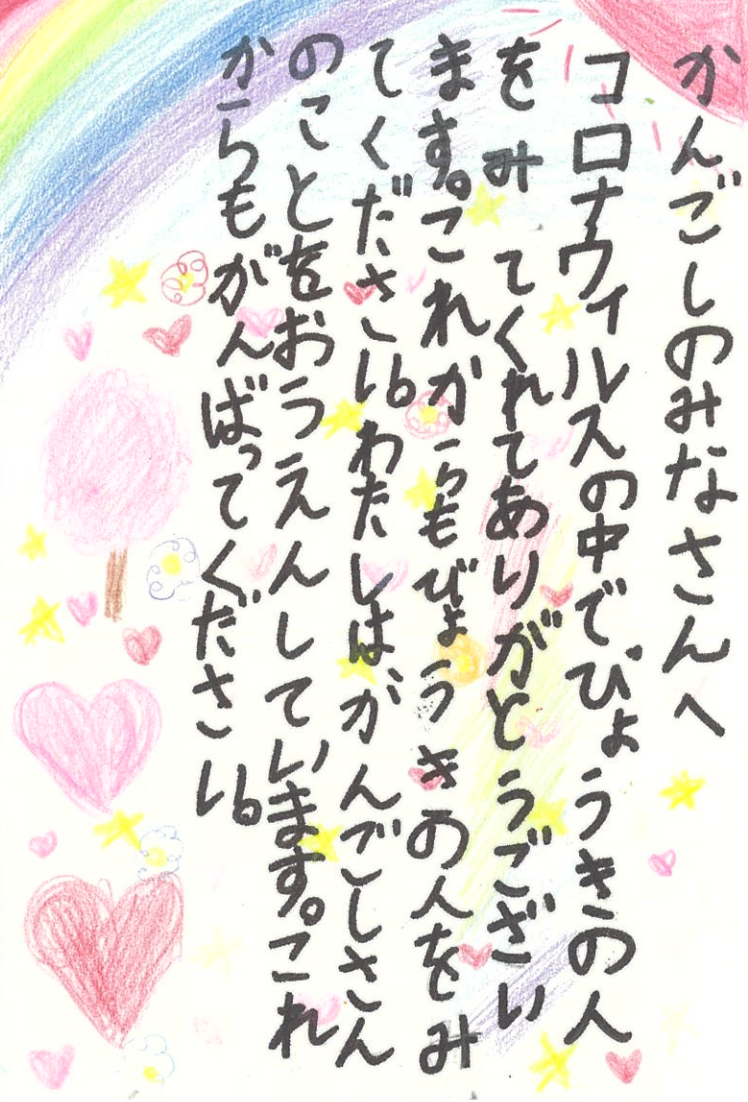 かんごしのみなさんへ
コロナウィルスの中でびょうきの人
をみてくれてありがとうござい
ます。これからもびょうきの人をみ
てください。わたしはがんごしさん
のことをおうえんしています。これ
からもがんばってください。